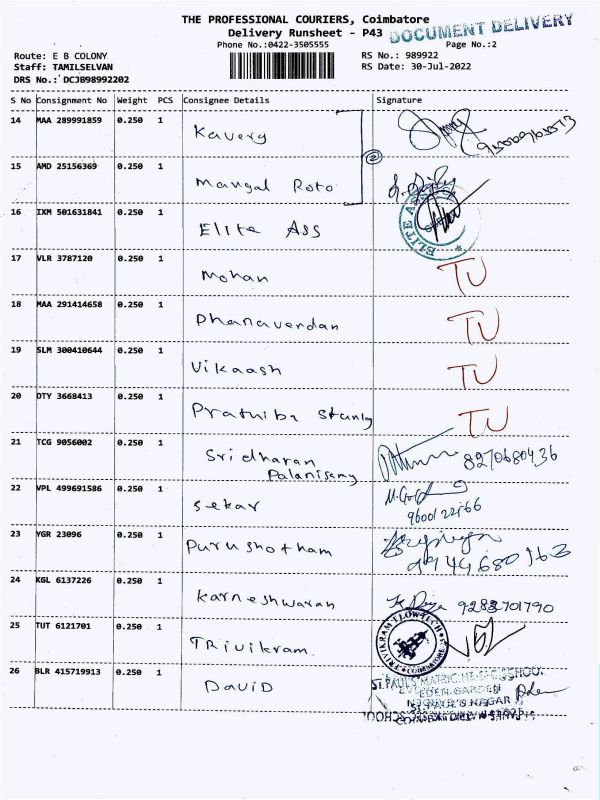 THE PROFESSIONAL COURIERS, Coimbatore
Delivery Runsheet - P43
DOCUMENT DELIVERY
Phone No.:0422-3505555
Page No.:2
Route: E B COLONY
RS No.: 989922
Staff: TAMILSELVAN
RS Date: 30-Jul-2022
DRS No.: DCJB98992202
S No Consignment No Weight PCS Consignee Details Signature
14 MAA 289991859 0.250 1 Kavery
2
15 AMD 25156369 0.250 1 Mangal Roto
16 IXM 501631841 0.250 1 Elite Ass
ELITE
17 VLR 3787120 0.250 1 Mohan TU
18 MAA 291414658 0.250 1 Dhanavendan TU
19 SLM 300410644 0.250 1 Vikaash TU
20 OTY 3668413 0.250 1 Prathiba Stanly TU
21 TCG 9056002 0.250 1 Sridharan Palanisamy 8270680436
22 VPL 499691586 0.250 1 Sekar
9600122566
23 YGR 23096 0.250 1 Purushotham
24 KGL 6137226 0.250 1 Karneshwaran 9282701790
25 TUT 6121701 0.250 1 TRivikram
TRIVIKRAM FLOWTECH COIMBATORE
26 BLR 415719913 0.250 1 DAVID
ST.PAUL'S MATRIC
EDEN GARDEN
ST.PAUL'S NAGAR